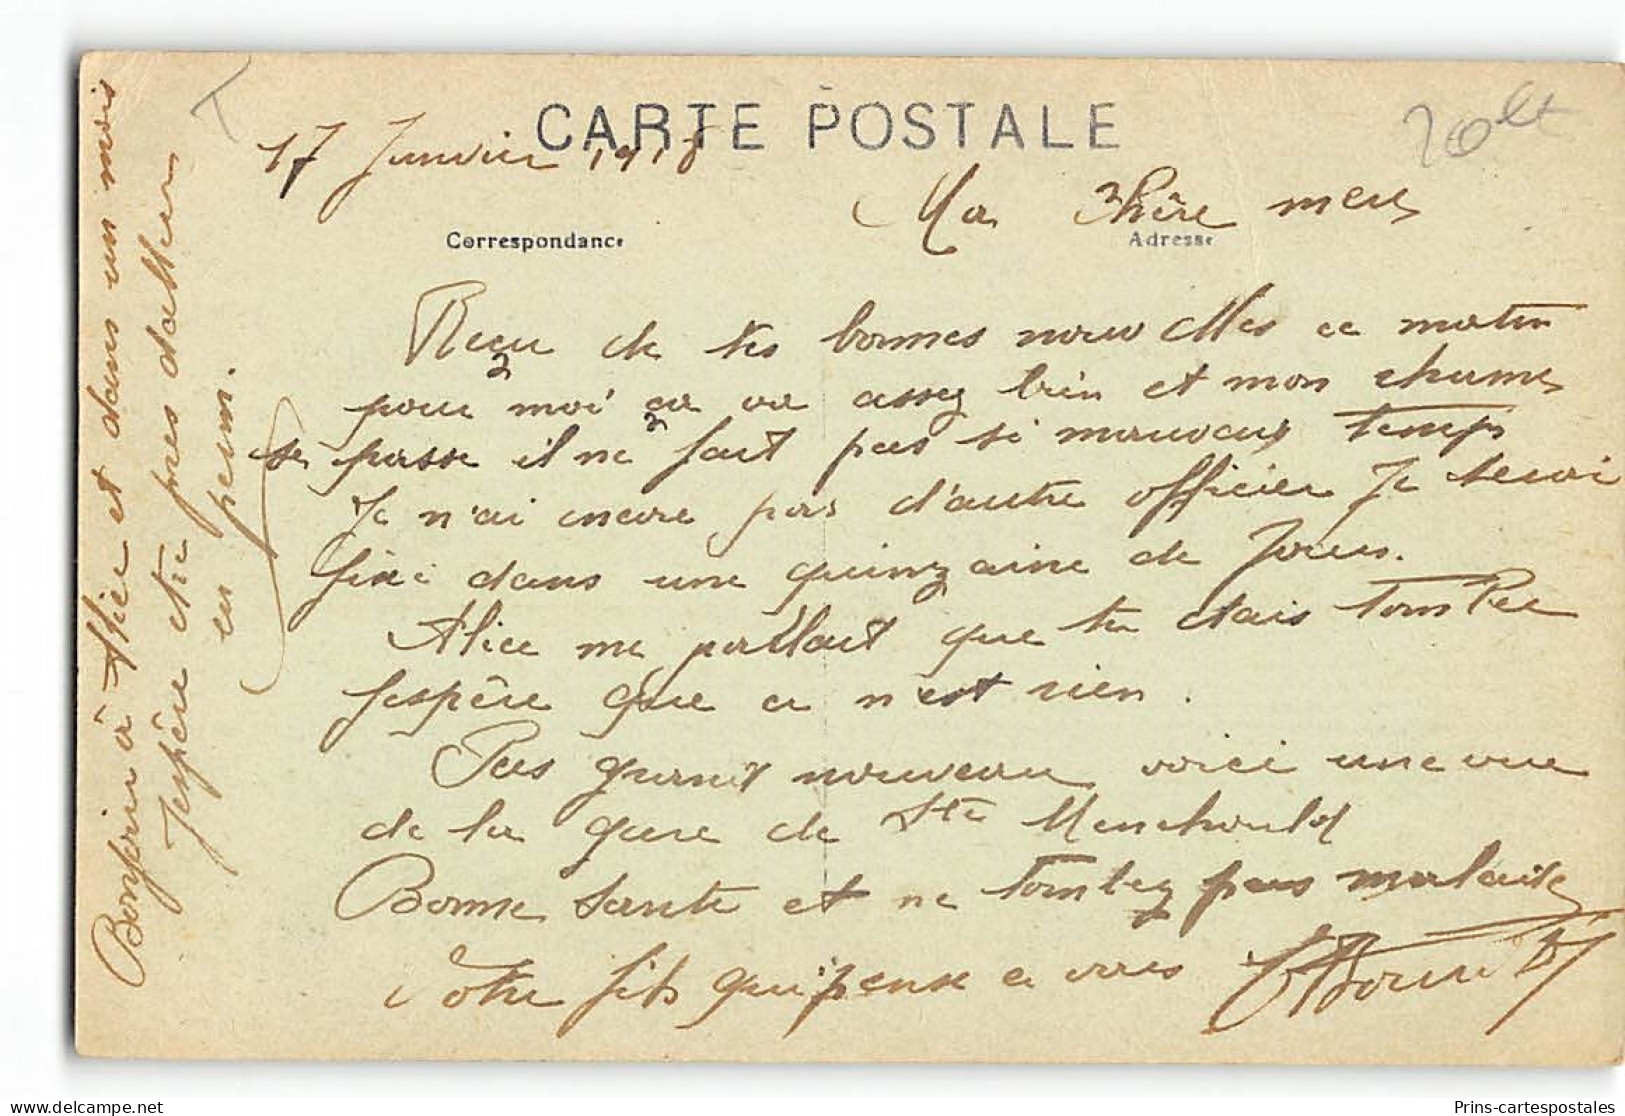 CARTE POSTALE
17 Janvier 1918
Ma Chère mere
Correspondance
Adresse
Reçu de tes bonnes nouvelles ce matin
pour moi ça va assez bien et mon rhume
se passe il ne fait pas si mauvais temps
Je n'ai encore pas d'autre officier Je serai
fixé dans une quinzaine de Jours.
Alice me parlait que tu étais tombée
J'espère que ce n'est rien.
Pas grand nouveau voici une vue
de la gare de Ste Menehould
Bonne Santé et ne tombez pas malade
Votre fils qui pense a vous
Bonjour à Alice et dans un mois
J'espère être pres d'aller
en perm.
Prins-cartespostales